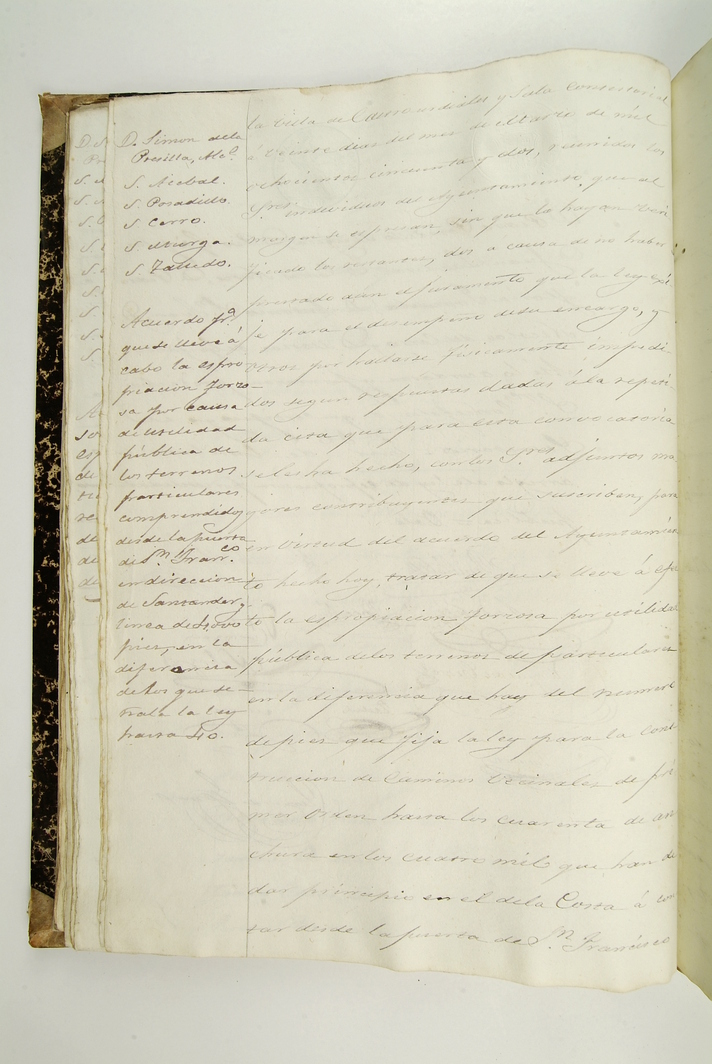 D. Simon dela
Presilla, Alce.
S. Acebal.
S. Posadillo.
S. Cerro.
S. Zalledo.
Acuerdo pa.
que se lleve á
cabo la espro
piacion forzo-
sa por causa
de utilidad
pública de
los terrenos
particulares
comprendidos
desde la puerta
de Sn. Franco
en direccion
de Santander y
linea de 4,000
pies, en la
diferencia
de los que se-
ñala la ley
hasta 40.
la Villa de Castrourdiales y Sala Consistorial
á veinte dias del mes de Marzo de mil
ochocientos cincuenta y dos, reunidos los
Sres. individuos del Ayuntamiento, que al
margen se espresan, sin que lo hayan veri
ficado los restantes, dos a causa de no haber
prestado aún el juramento que la ley exi
je para el desempeño de su encargo, y
otros por hallarse fisicamente impedi
dos segun respuestas dadas á la repeti
da cita que para esta convocatoria
se les ha hecho, con los Sres. adjuntos ma
yores contribuyentes que suscriben, para
en virtud del acuerdo del Ayuntamien
to hecho hoy, tratar de que se lleve á efec
to la espropiacion forzosa por utilidad
pública de los terrenos de particulares
en la diferencia que hay del numero
de pies que fija la ley para la cons
truccion de caminos vecinales de pri
mer orden hasta los cuarenta de an
chura en los cuatro mil que han de
dar principio en el de la Costa á con
tar desde la puerta de Sn. Francisco